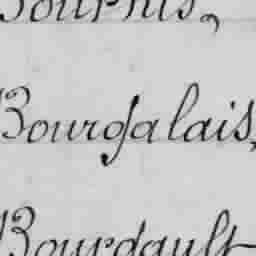 Bourgalais,
Bourdault